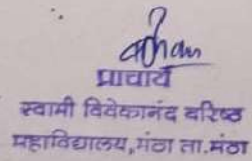 प्राचार्य
स्वामी विवेकानंद वरिष्ठ
महाविद्यालय, मंठा ता. मंठा